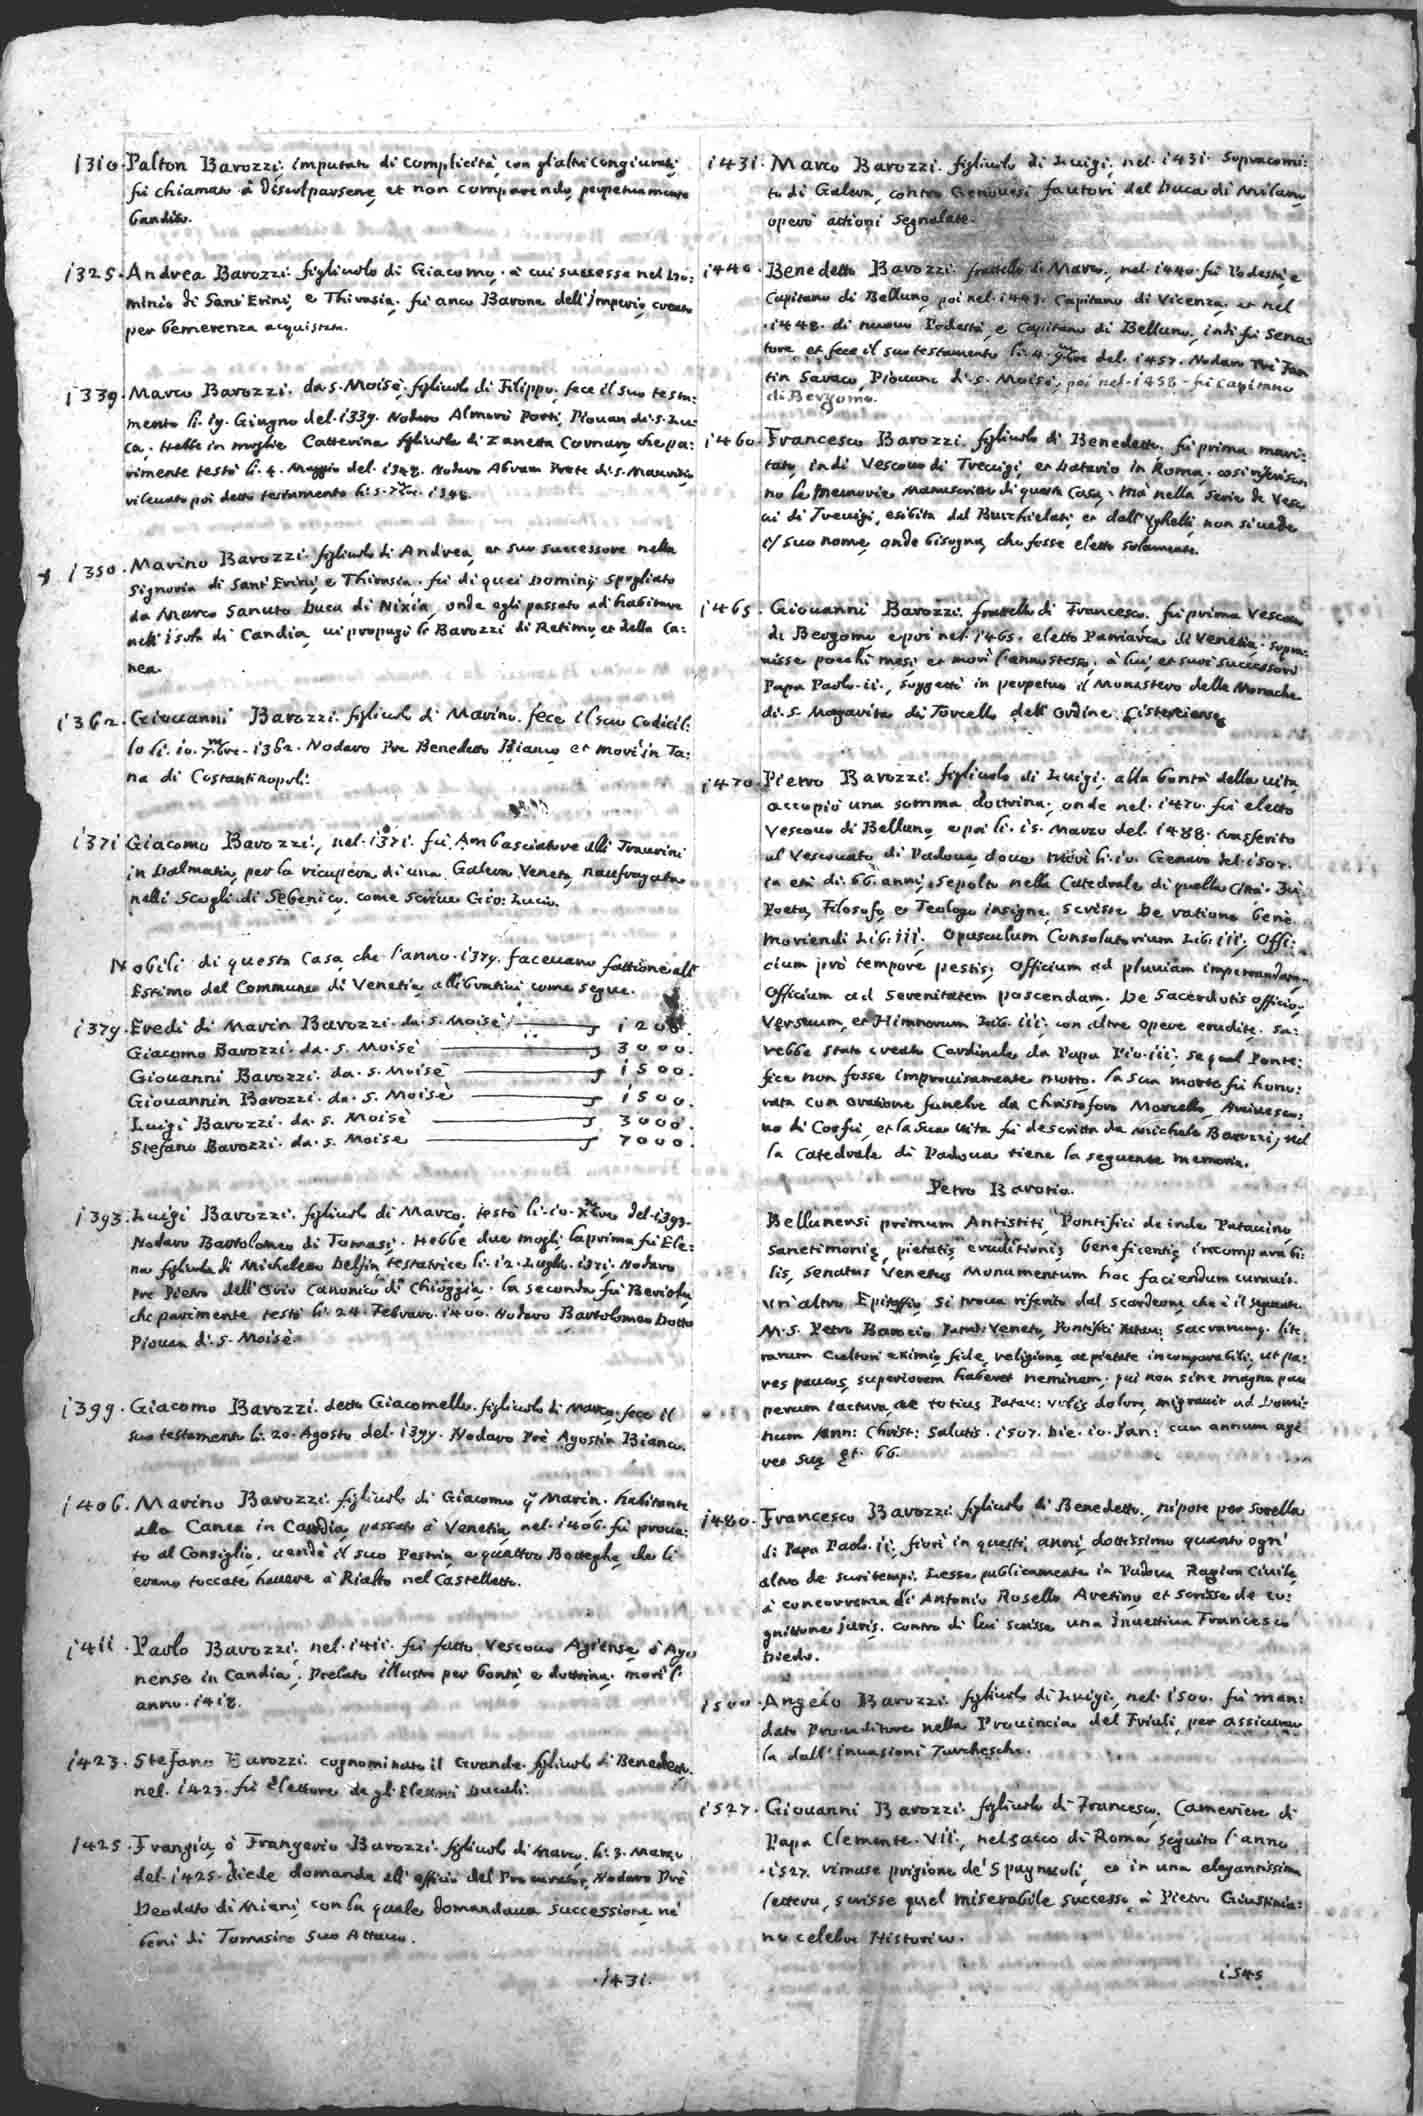 1310. Palton Barozzi, imputato di complicità con gl'altri congiurati,
fù chiamato à discolparsene, et non comparendo, perpetuamente
bandito.
1325. Andrea Barozzi figliuolo di Giacomo, à cui successe nel Do:
minio di Sant'Erini, e Thirasia, fù anco Barone dell'Imperio, creato
per bemerenza acquistata.
1339. Marco Barozzi da S. Moisè, figliuolo di Filippo, fece il suo testa:
mento li 19. Giugno del 1339. Nodaro Almorò Porti, Piouan di S. Lu:
ca. Hebbe in moglie Catterina figliuola di Zanetta Cornaro, che pa:
rimente testò li 4. Maggio del 1348. Nodaro Abram Prete di S. Maurizio,
rileuato poi detto testamento li 5. 7bre 1348.
1350. Marino Barozzi figliuolo di Andrea, et suo successore nella
Signoria di Sant'Erini, e Thirasia, fù di quei Dominij spogliato
da Marco Sanuto Duca di Nixia, onde egli passato ad habitare
nell'Isola di Candia, ui propagò li Barozzi di Retimo, et della Ca:
nea.
1362. Giouanni Barozzi figliuolo di Marino, fece il suo Codicil:
lo li 10. 7mbre 1362. Nodaro Pre Benedetto Bianco et morì in Ta:
na di Costantinopoli.
1371 Giacomo Barozzi, nel 1371. fù Ambasciatore alli Traurini
in Dalmatia, per la ricupera di una Galera Veneta, naufragata
nelli Scogli di Sebenico, come scriue Gio: Lucio.
Nobili di questa Casa, che l'anno 1379. faceuano fattione all'
Estimo del Commune di Venetia, alli Gratini come segue.
1379. Eredi di Marin Barozzi da S. Moisè 1200.
Giacomo Barozzi da S. Moisè 3000.
Giouanni Barozzi da S. Moisè 1500.
Giouannin Barozzi da S. Moisè 1500.
Luigi Barozzi da S. Moisè 3000.
Stefano Barozzi da S. Moise 7000.
1393. Luigi Barozzi figliuolo di Marco, testò li 10. Xbre del 1393.
Nodaro Bartolomeo di Tomasi. Hebbe due mogli, la prima fù Ele:
na figliuola di Micheletto Delfin testatrice li 12. Luglio 1371. Nodaro
Pre Pietro dell'Orio Canonico di Chioggia. La seconda fù Beriola,
che parimente testò li 24. Febraro 1400. Nodaro Bartolomeo Dotto
Piouan di S. Moisè.
1399. Giacomo Barozzi detto Giacomello, figliuolo di Marco, fece il
suo testamento li 20. Agosto del 1399. Nodaro Prè Agostin Bianco.
1406. Marino Barozzi figliuolo di Giacomo q Marin, habitante
alla Canea in Candia, passato à Venetia, nel 1406. fù proua:
to al Consiglio, uendè il suo Pestrin e quattro Botteghe, che li
erano toccate hauere à Rialto nel Castelletto.
1411. Paolo Barozzi, nel 1411. fù fatto Vescouo Agiense, ò Agio
nense in Candia, Prelato illustre per bontà, e dottrina, morì l'
anno 1418.
1423. Stefano Barozzi cognominato il Grande, figliuolo di Benedetto,
nel 1423. fù Elettore de gl'Elettori Ducali.
1425. Frangia, ò Frangerio Barozzi figliuolo di Marco, li 3. Marzo
del 1425. diede domanda all'officio del Procurator, Nodaro Prè
Deodato di Miani, con la quale domandaua successione nè
beni di Tomasino suo Attauo.
1431.
1431. Marco Barozzi figliuolo di Luigi, nel 1431. Sopracomi:
to di Galera, contro Genouesi fautori del Duca di Milano,
operò attioni segnalate.
1440. Benedetto Barozzi fratello di Marco, nel 1440. fù Podestà, e
Capitano di Belluno, poi nel 1443. Capitano di Vicenza, et nel
1448. di nuouo Podestà, e Capitano di Belluno, indi fù Sena:
tore, et fece il suo testamento li 4. 9mbre del 1457. Nodaro Prè Fan
tin Saraco, Piouano di S. Moisè, poi nel 1458 fù Capitano
di Bergomo.
1460. Francesco Barozzi figliuolo di Benedetto, fù prima mari:
tato, indi Vescouo di Treuigi, et Datario in Roma, cosi riferiscon
no le Memorie Manuscritte di questa Casa, mà nella serie de Vesco
ui di Treuigi, esibita dal Burchielati, et dall'Vghelli, non si uede
il suo nome, onde bisogna, che fosse eletto solamente.
1465. Giouanni Barozzi fratello di Francesco, fù prima Vescouo
di Bergomo, e poi nel 1465. eletto Patriarca di Venetia, soprau:
uisse pochi mesi, et morì l'anno stesso, à lui, et suoi successori
Papa Paolo II, soggettò in perpetuo il Monastero delle Monache
di S. Margarita di Torcello dell'Ordine Cisterciense.
1470. Pietro Barozzi figliuolo di Luigi, alla bontà della uita
accopiò una somma dottrina, onde nel 1470. fù eletto
Vescouo di Belluno, e poi li 15. Marzo del 1488. trasferito
al Vescouato di Padoua, doue morì li 10. Genaro del 1507.
in età di 66. anni, sepolto nella Catedrale di quella Città. Fù
Poeta, Filosofo, e Teologo insigne, scrisse De ratione benè
moriendi Lib. III, Opusculum Consolatorium Lib. III, Offi:
cium prò tempore pestis, Officium ad pluuiam impetrandam,
Officium ad serenitatem poscendam. De Sacerdotis officio,
Versuum, et Himnorum Lib. III, con altre opere erudite, sa:
rebbe stato creato Cardinale da Papa Pio III, se qual Ponte:
fice non fosse improuisamente morto. La sua morte fù hono:
rata con oratione funebre da Christoforo Marcello, Arciuesco:
uo di Corfù, et la sua uita fù descritta da Michele Barozzi, nel
la Catedrale di Padoua tiene la seguente memoria.
Petro Barotio.
Bellunensi primum Antistiti, Pontifici deinde Patauino,
sanctimonię, pietatis, eruditionis, beneficentię incomparabi:
lis, Senatus Venetus Monumentum hoc faciendum curauit.
Vn'altro Epitaffio si troua riferito dal Scardeone, che è il seguente.
M. S. Petro Barocio Patrit: Veneto, Pontifici Patau: sacrarumq. lite:
rarum Cultori eximio, fide, religione, ac pietate incomparabili, ut pa:
res paucos, superiorem haberet neminem, qui non sine magna pau
perum iactura, ac totius Patau: urbis dolore, migrauit ad Domi:
num Ann: Christ: Salutis 1507. Die 10. Jan: cum annum age
ret suę ęt. 66.
1480. Francesco Barozzi figliuolo di Benedetto, nipote per sorella
di Papa Paolo II, fiorì in questi anni, dottissimo quanto ogn'
altro de suoi tempi. Lesse publicamente in Padoua Ragion Ciuile,
à concorrenza di Antonio Rosello Aretino et scrisse de co:
gnitione juris. contro di lui scrisse una Inuettiua Francesco
Diedo.
1500. Angelo Barozzi figliuolo di Luigi, nel 1500. fù man:
dato Proueditore nella Prouincia del Friuli, per assicurar
la dall'inuasioni Turchesche.
1527. Giouanni Barozzi figliuolo di Francesco, Cameriere di
Papa Clemente VII, nel sacco di Roma, seguito l'anno
1527. rimase prigione de' Spagnuoli, et in una elegantissima
lettera, scrisse quel miserabile successo à Pietro Giustinia:
no celebre Historico.
1545